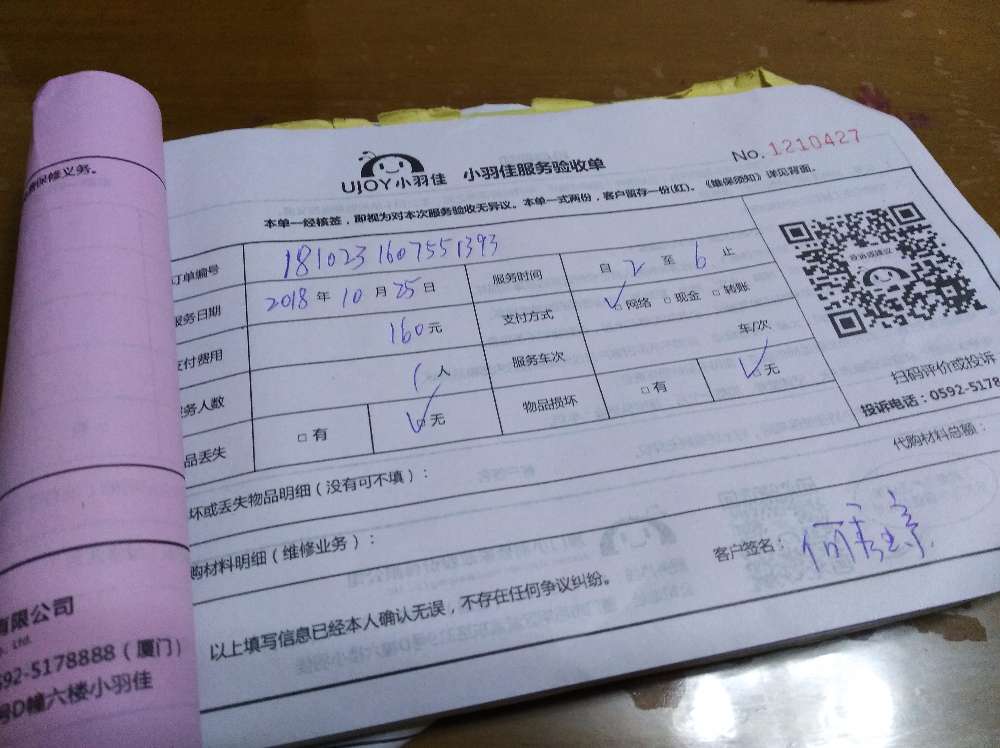 保修义务。
UJOY小羽佳 小羽佳服务验收单
No. 1210427
本单一经核签，即视为对本次服务验收无异议。本单一式两份，客户留存一份(红)。《维保须知》详见背面。
订单编号 1810231607551393
服务日期 2018 年 10 月 25 日 服务时间 自 2 至 6 止
支付费用 160 元 支付方式 □网络 □现金 □转账
服务人数 1 人 服务车次 车/次
品丢失 □有 □无 物品损坏 □有 □无
扫码评价或投诉
投诉电话：0592-5178
坏或丢失物品明细（没有可不填）：
代购材料总额：
购材料明细（维修业务）：
客户签名：
以上填写信息已经本人确认无误，不存在任何争议纠纷。
有限公司
Ltd.
592-5178888（厦门）
号D幢六楼小羽佳